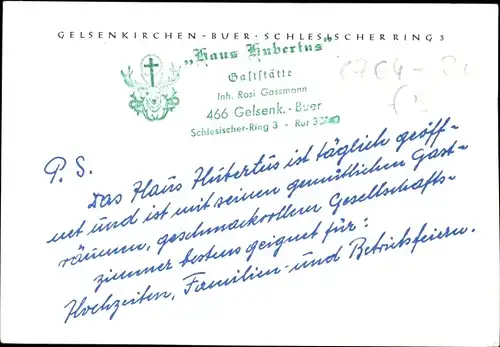 GELSENKIRCHEN-BUER·SCHLESISCHERRING 3
„Haus Hubertus“
Gaststätte
Inh. Rosi Gassmann
466 Gelsenk.-Buer
Schlesischer-Ring 3 - Ruf
P.S.
Das Haus Hubertus ist täglich geöff-
net und ist mit seinen gemütlichen Gast-
räumen, geschmackvollem Gesellschafts-
zimmer bestens geignet für:
Hochzeiten, Familien- und Betriebsfeiern.